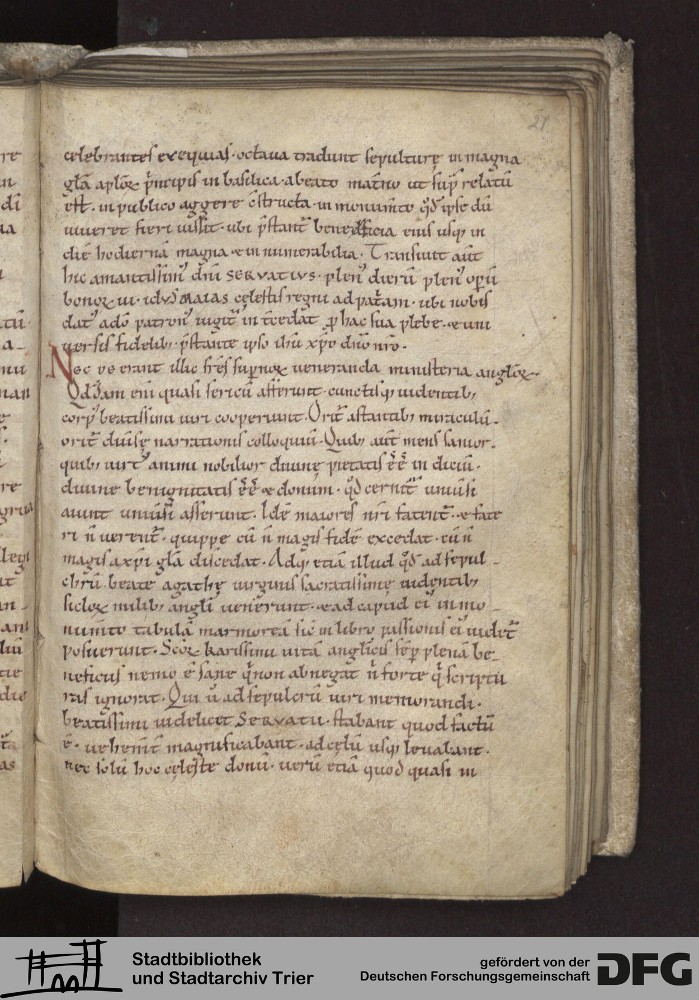 21
celebrantes exequias · octaua tradunt sepulturę in magna
gl̄a aplōꝝ p̄ncipis in basilica · a beato mat̄no ut sup̄ relatū
est · in publico aggere c̄structa · in monum̄to qd̄ ipse dū
uiueret fieri iussit · ubi p̄stant̄ beneficia eius usq; in
diē hodiernā magna · & innumerabilia · Transiuit aūt
hic amantissimꝰ dn̄i SERVATIVS · plenꝰ dierū plenꝰ opū
bonoꝝ · iii · idus maias cęlestis regni ad patriam · ubi nobis
datꝰ a dō patronꝰ iugit̄ int̄cedat p̄ hac sua plebe · & uni
uersis fidelib; p̄stante ipso ih̄u xp̄o dn̄o nr̄o ·
Nec uo erant illic frēs supnoꝝ ueneranda ministeria angloꝝ ·
Qd̄dam eni quasi sericū afferunt · cunctisq; uidentib;
corpꝰ beatissimi uiri cooperiunt · Orit̄ astantib; miraculū ·
orit̄ diuisę narrationis colloquiū · Quib; aūt mens sanior ·
quib; uirtꝰ animi nobilior diuinę pietatis ēē indiciū ·
diuine benignitatis ēē & donum · qd̄ cernit̄ uniuisi
aiunt uniuisi asserunt · Idē maiores nr̄i fatent̄ · & fate
ri n̄ uerent̄ · quippe cū n̄ magis fidē excedat · cū n̄
magis a xp̄i gl̄a discedat · Adq; etiā illud qd̄ ad sepul-
chrū beate agathę uirginis sacratissimę uidentib;
sicloꝝ milib; angli uenerunt · & ad capud eiꝰ in mo-
num̄to tabulā marmoreā sic̄ in libro passionis eiꝰ uidet̄
posuerunt · Scōꝝ karissimi uitā anglicis sēp plenā be-
neficiis nemo ē sane q̄ non abnegat n̄ forte q̄ scriptu
ras ignorat · Qui ū ad sepulcrū uiri memorandi ·
beatissimi uidelicet SERVATII · stabant quod factū
ē · uehem̄t magnificabant · ad cęlū usq; leuabant ·
nec solū hoc cęleste donū · uerū etiā quod quasi in
Stadtbibliothek
und Stadtarchiv Trier
gefördert von der
Deutschen Forschungsgemeinschaft
DFG